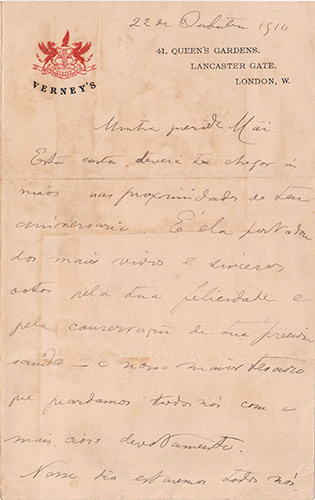 22 de Outubro 1914
VERNEY'S
41. QUEEN'S GARDENS.
LANCASTER GATE.
LONDON, W.
Minha querida Mãi
Esta carta deverá te chegar ás
mãos nas proximidades do teu
anniversario. É ela portadora
dos mais vivos e sinceros
votos pela tua felicidade e
pela conservação de tua preciosa
saude — o nosso maior thesouro
que guardamos todos nós com o
mais cioso devotamento.
Nesse dia estaremos todos nós